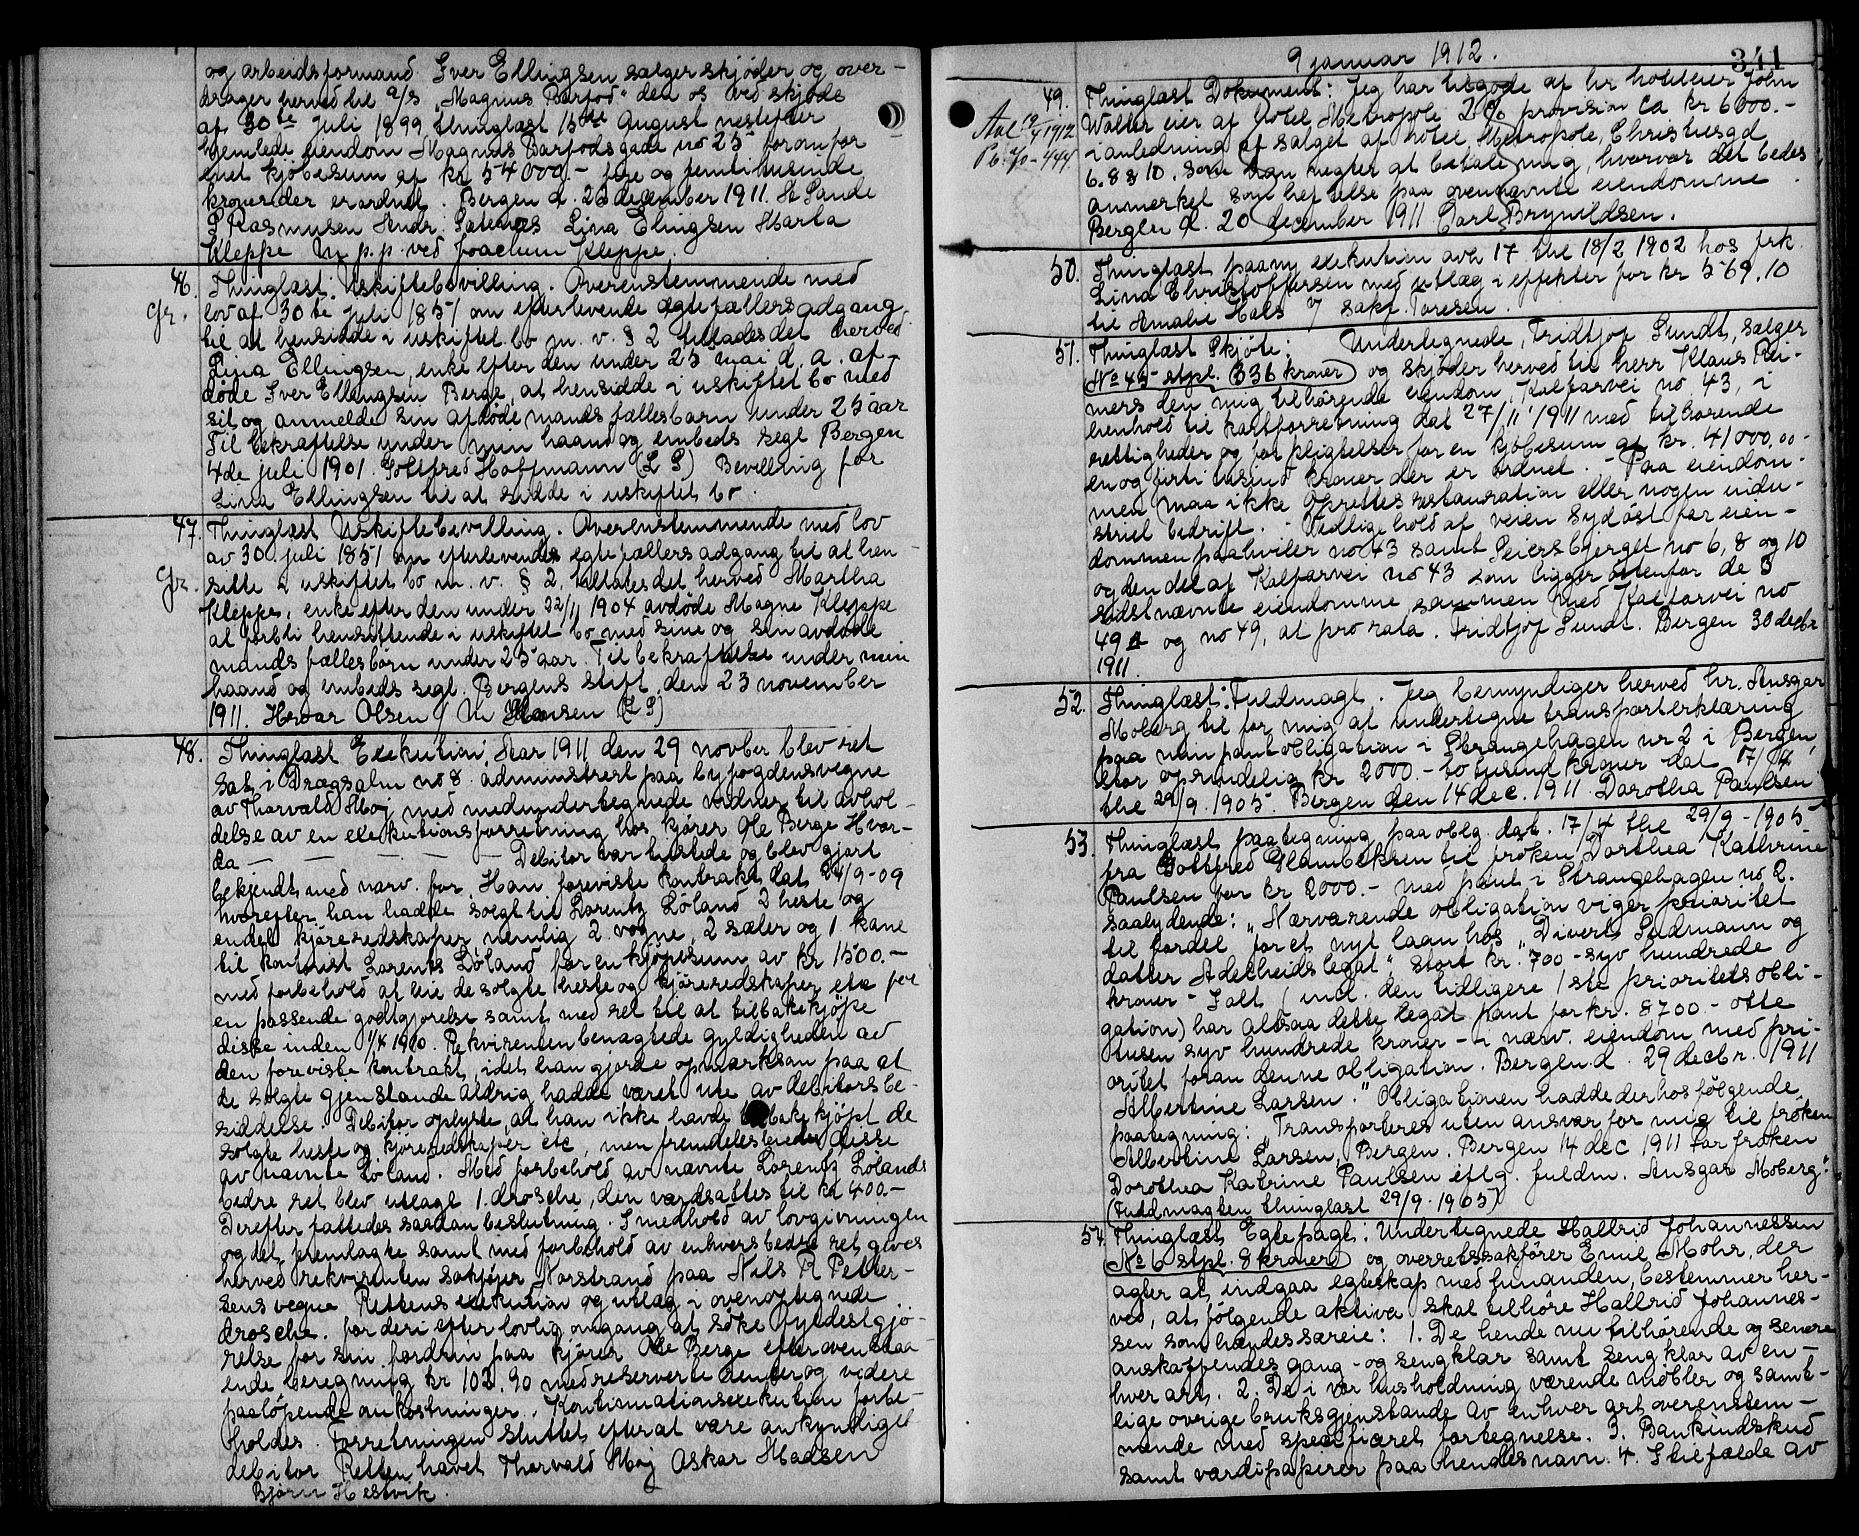 og arbeidsformand Iver Ellingsen sælger skjøder og over-
drager herved til a/s „Magnus Barfod" den os ved skjøde
af 30te Juli 1899 thinglæst 15de August næstefter
hjemlede eiendom Magnus Barfodsgade no 25 for omfor
enet kjøbesum af kr 54000.- fire og femti tusinde
kroner der er ordnet. Bergen d. 22 december 1911. St Sande
P Rasmusen Hendr. Sætenæs Lina Elingsen Marta
Kleppe m p. p. ved Joachim Kleppe.
46. Thinglæst: Uskiftebevilling. Overenstemmende med
Gr. lov af 30te juli 1851 om efterlevende ægtefællers adgang
til at hensidde i uskiftet bo m. v. § 2 tillades det herved
Lina Ellingsen, enke efter den under 25 mai d. a. af-
døde Iver Ellingsen Berge, at hensidde i uskiftet bo med
sit og anmeldte sin afdøde mands fællesbarn under 25 aar
Til bekræftelse under min haand og embeds segl Bergen
4de juli 1901. Gottfred Hoffmann (L S) Bevilling for
Lina Ellingsen til at sidde i uskiftet bo.
47. Thinglæst Uskiftebevilling. Overenstemmende med lov
av 30. juli 1851 om efterlevendes egtefællers adgang til at hen-
Gr. sitte i uskiftet bo m. v. § 2. tillates det herved Martha
Kleppe, enke efter den under 22/11 1904 avdøde Magne Kleppe
at forbli hensittende i uskiftet bo med sine og sin avdøde
mands fællesbørn under 25 aar. Til bekræftelse under min
haand og embeds segl. Bergens stift, den 23 november
1911. Hroar Olsen / M Hansen (L S)
48. Thinglæst Exekution: Aar 1911 den 29 novber blev ret
sat i Drægsalm no 8. administrert paa byfogdens vegne
av Thorvald Møj med medundertegnede vidner til avhol-
delse av en exekutionsforretning hos kjører Ole Berge Hvor-
da — — — — — Debitor var tilstede og blev gjort
bekjendt med nærv. for. Han foreviste kontrakt dat 24/9-09
hvorefter han hadde solgt til Lorentz Løland 2 heste og
endel kjøreredskaper nemlig 2 vogne, 2 sæler og 1 kane
til kontorist Lorents Løland for en kjøpesum av kr 1500.-
med forbehold at leie de solgte heste og kjøreredskaper etc for
en passende godtgjørelse samt med ret til at tilbakekjøpe
disse inden 1/4 1910. Rekvirenten benægtede gyldigheden av
den foreviste kontrakt, idet han gjorde opmærksom paa at
de solgte gjenstande aldrig hadde været ute av debitors be-
siddelse. Debitor oplyste, at han ikke havde tilbakekjøpt de
solgte heste og kjøreredskaper etc, men fremdeles leiede disse
av nævnte Løland. Med forbehold av nævnte Lorentz Lølands
bedre ret blev utlagt 1. drosche, den værdsattes til kr 400.-
Derefter fattedes saadan beslutning. I medhold av lovgivningen
og det fremlagte samt med forbehold av enhvers bedre ret gives
herved rekvirenten sakfører Norstrand paa Nils R Petter-
sens vegne Rettens exekution og utlæg i ovenoptegnede
drosche. for deri efter lovlig omgang at søke fyldestgjø-
relse for sin fordring paa kjører Ole Berge efter ovenstaa-
ende beregning kr 102.90 med reserverte renter og videre
paaløpende omkostninger. Kontinuationsexekution forbe-
holdes. Forretningen sluttet efterat være avkyndiget
debitor Retten hævet Thorvald Møj Oskar Madsen
Bjørn Hestvik.
9 januar 1912.
341
49. Thinglæst Dokument: Jeg har tilgode af hr hoteleier John
Avl 12/4 1912 Walter eier af Hotel Metropole 2% provision ca kr 6000.-
Pb 70-444 i anledning af salget af hotel Metropole, Christiesgd
6. 8 & 10. som han nægter at betale mig, hvorvor det bedes
anmerket som heftelse paa ovennævnte eiendomme.
Bergen d. 20 december 1911 Carl Brynildsen.
50. Thinglæst paany exekution avh 17 thl 18/2 1902 hos frk.
Lina Christoffersen med utlæg i effekter for kr 569.10
til Amalie Hals v sakf. Toresen.
51. Thinglæst Skjøte: Undertegnede, Fridtjof Sundt, sælger
No 45 stpl. 336 kroner og skjøder herved til herr Klaus Rei-
mers den mig tilhørende eiendom Kalfarvei no 43, i
henhold til kartforretning dat 27/11 1911 med tilhørende
rettigheder og forpligtelser for en kjøbesum af kr. 41000,00-
en og førti tusind kroner der er ordnet. - Paa eiendom-
men maa ikke oprettes restauration eller nogen indu-
striel bedrift. - Vedligehold af veien sydøst for eien-
dommen paahviler no 43 samt Leiersbjerget no 6, 8 og 10
og den del af Kalfarvei no 43 som ligger ovenfor de 3
sidstnævnte eiendomme sammen med Kalfarvei no
49 A og no 49, at pro rata. Fridtjof Sundt. Bergen 30 decbr
1911.
52. Thinglæst: Fuldmagt. Jeg bemyndiger herved hr. Ansgar
Moberg til for mig at undertegne transporterklæring
paa min pantobligation i Strangehagen nr 2 i Bergen,
stor oprindelig kr 2000.- to tusind kroner dat 17/4
thl 29/9 1905. Bergen den 14 dec. 1911. Dorothea Paulsen
53. Thinglæst paategning paa oblg. dat. 17/4 thl 29/9-1905
fra Gottfred Glambeksen til frøken Dorthea Kathrine
Paulsen for kr 2000.- med pant i Strangehagen no 2.
saalydende: „Nærværende obligation viger prioritet
til fordel for et nyt laan hos „Divert Sudmann og
datter Adelheids legat", stort kr. 700 - syv hundrede
kroner - Ialt (incl. den tidligere 1ste prioritets obli-
gation) har altsaa dette legat pant for kr. 8700 - otte
tusen syv hundrede kroner - i nærv. eiendom med pri-
oritet foran denne obligation. Bergen d. 29 decbr. 1911
Albertine Larsen." Obligationen hadde derhos følgende
paategning: „Transporteres uten ansvar for mig til frøken
Albertine Larsen, Bergen. Bergen 14 dec 1911 For frøken
Dorothea Katrine Paulsen eftg. fuldm. Ansgar Moberg."
(Fuldmagten thinglæst 29/9-1905)
54. Thinglæst Egtepagt: Undertegnede Hallrid Johannessen
No 6 stpl. 8 kroner og overretssakfører Emil Mohr, der
agter at indgaa egteskap med hinanden, bestemmer her-
ved, at følgende aktiva skal tilhøre Hallrid Johannes-
sen som hændes særeie: 1. De hende nu tilhørende og senere
anskaffendes gang- og sengklær samt sengklær av en-
hver art. 2. De i vor husholdning værende møbler og samt-
lige øvrige bruksgjenstande av enhver art overenstem-
mende med specifiseret fortegnelse. 3. Bankindskud
samt værdipapirer paa hendes navn. 4. I tilfælde av